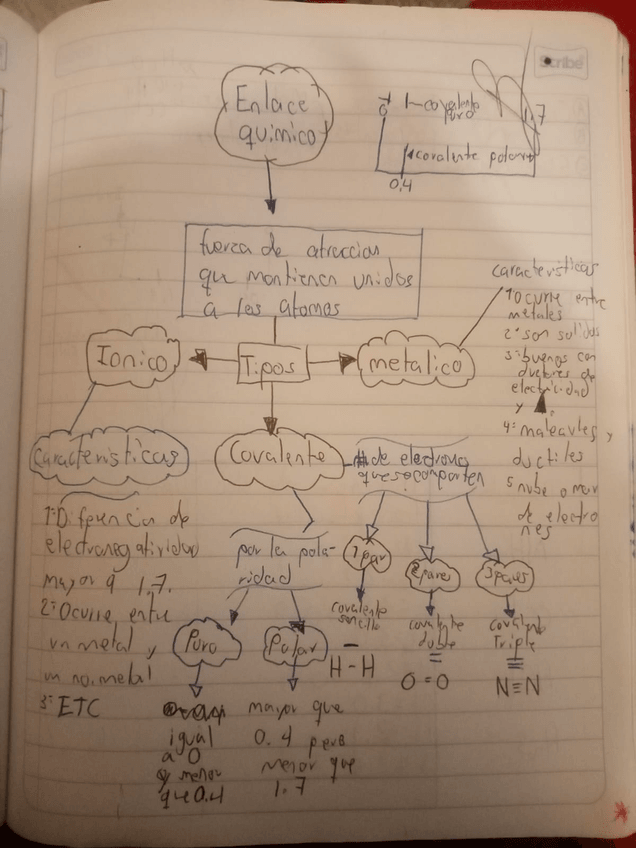 Scribe
Enlace
químico
0
covalente
puro
1.7
covalente polar
0.4
fuerza de atraccion
que mantienen unidos
a los atomos
Tipos
Ionico
metalico
Covalente
Caracteristicas
1: Diferencia de
electronegatividad
mayor a 1.7.
2: Ocurre entre
un metal y
un no metal
3: ETC
caracteristicas
1 Ocurre entre
metales
2: son solidos
3: buenos con
ductores de
electricidad
y
4: maleavles y
ductiles
5 nube o mar
de electro
nes
por la pola-
ridad
Puro
Polar
igual
a 0
y menor
que 0.4
mayor que
0.4 pero
menor que
1.7
# de electrones
que se comparten
1 par
2 pares
3 pares
covalente
sencillo
–
H-H
covalente
doble
=
O=O
covalente
Triple
≡
N≡N